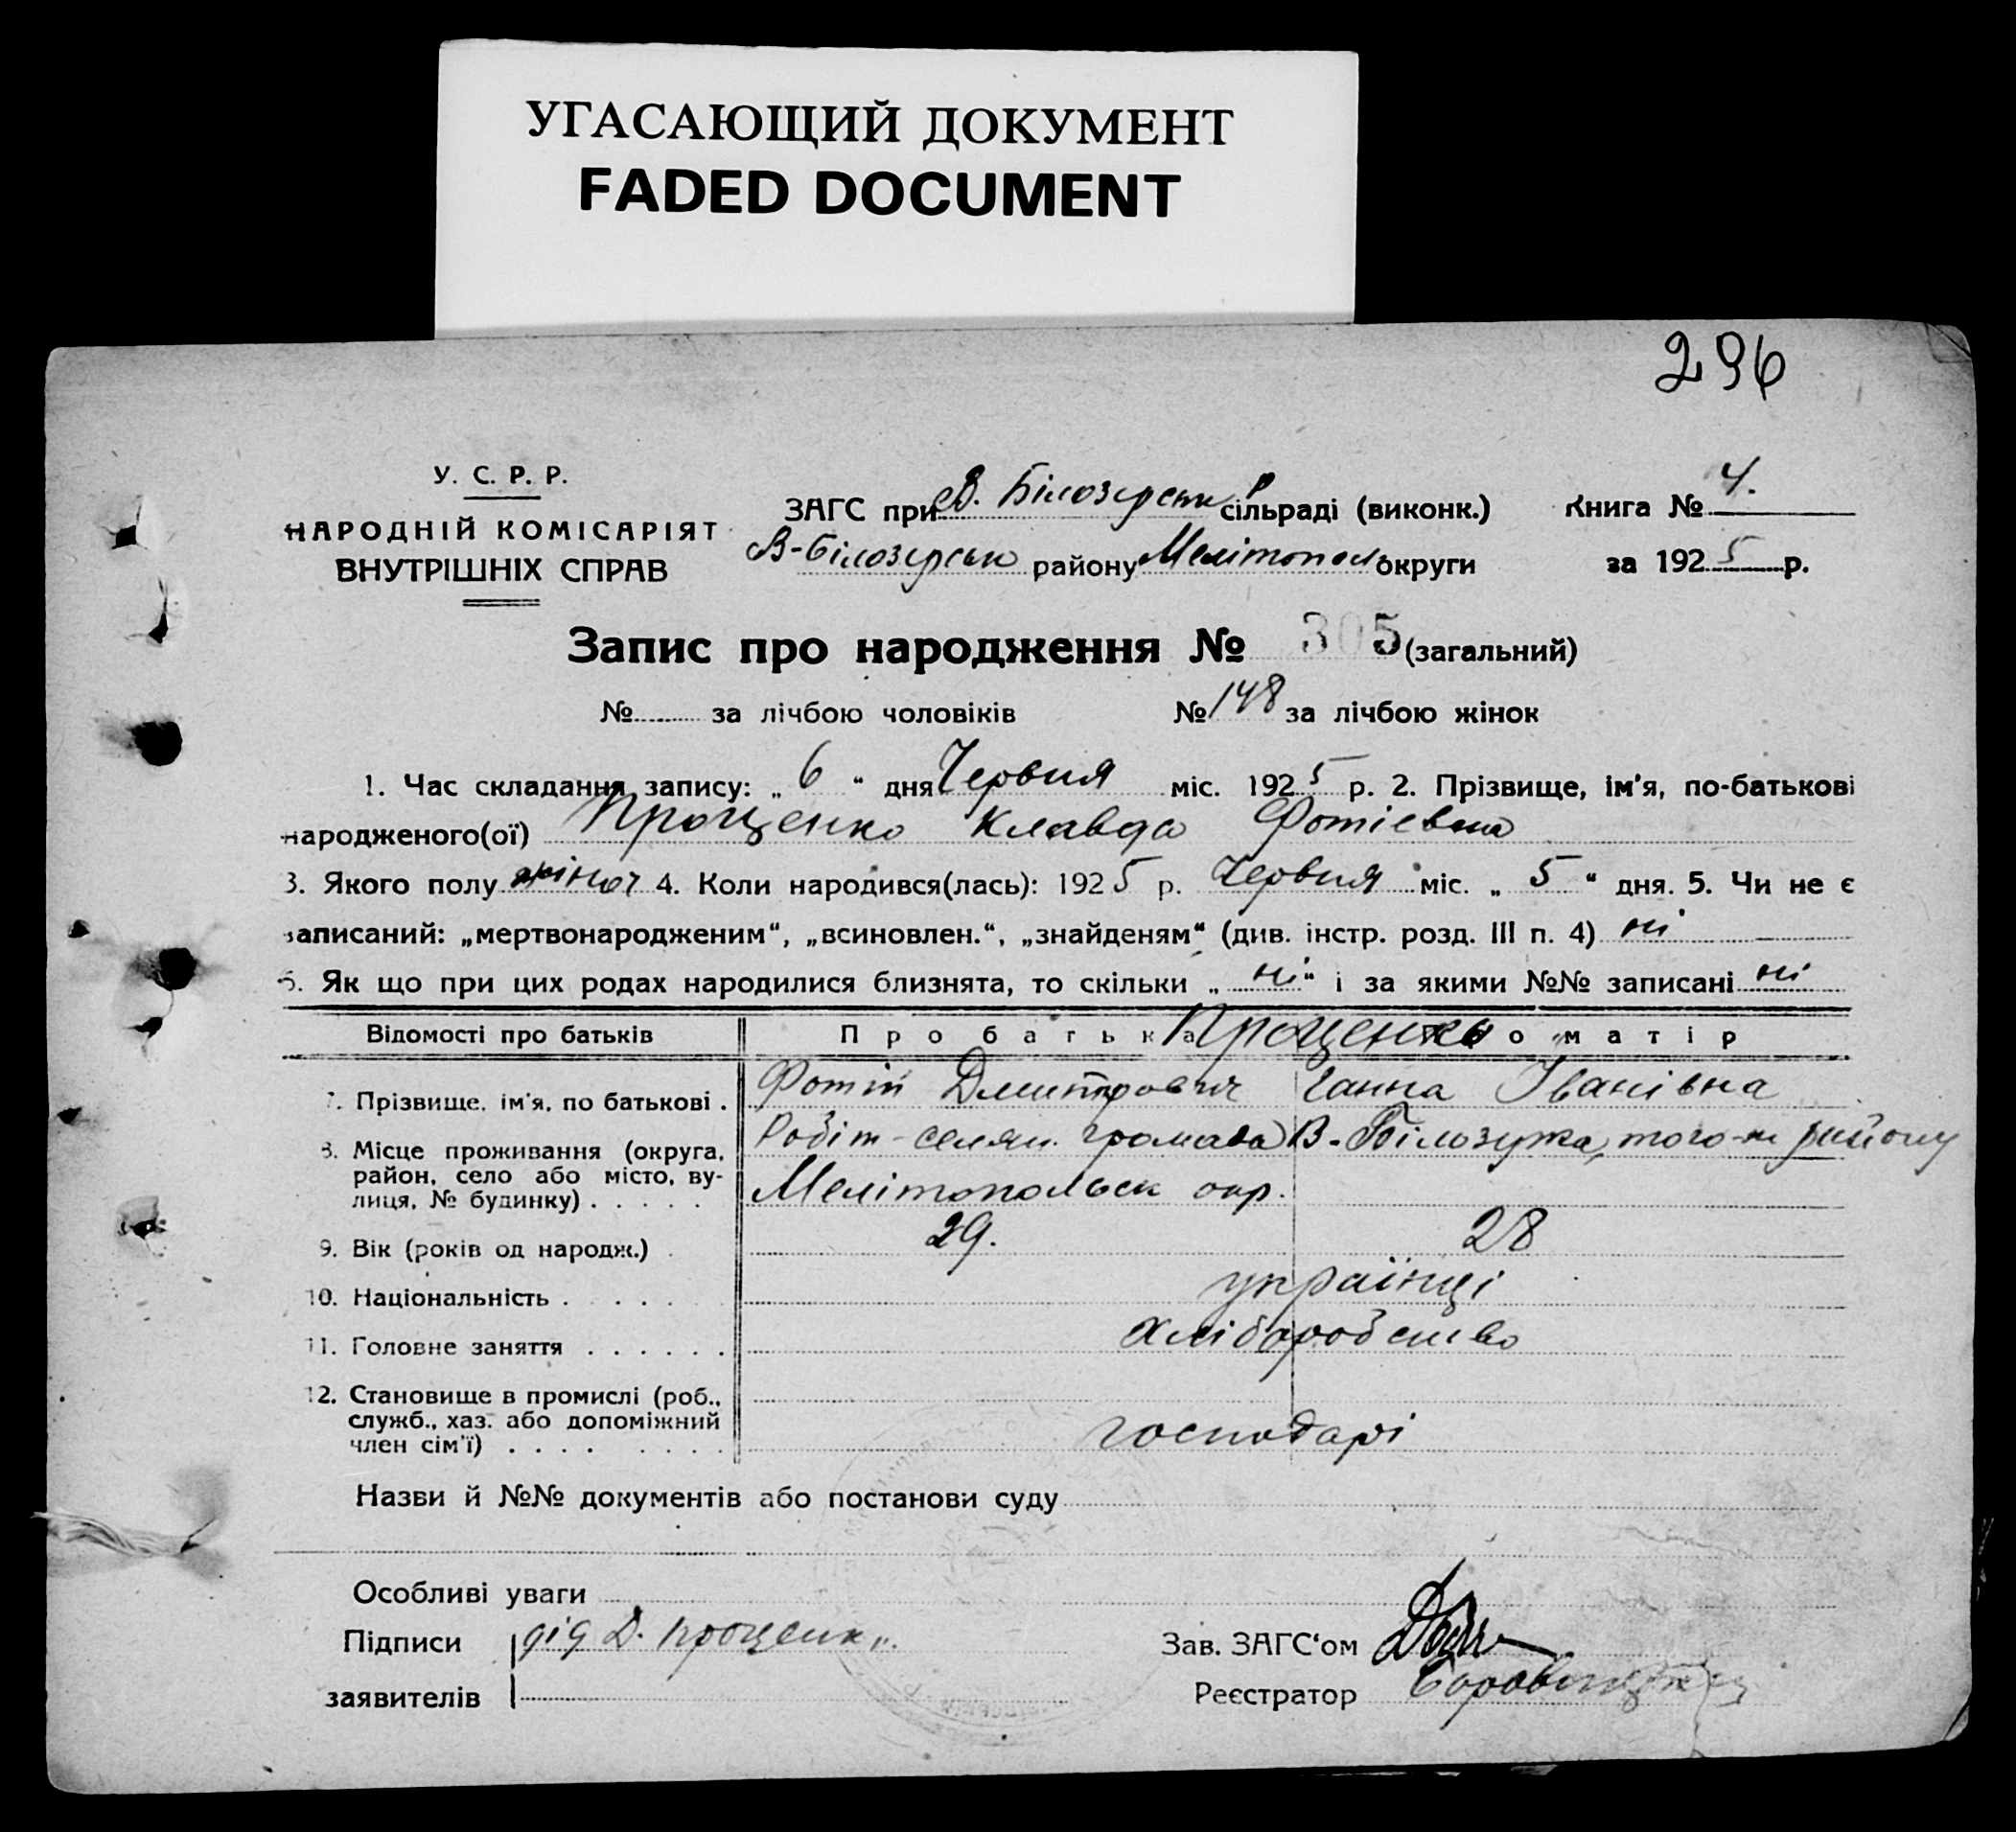 УГАСАЮЩИЙ ДОКУМЕНТ
FADED DOCUMENT
296
У. С. Р. Р.
НАРОДНІЙ КОМІСАРІЯТ
ВНУТРІШНІХ СПРАВ
ЗАГС при В. Білозерськ сільраді (виконк.)
Книга № 4.
В-Білозерськ району Мелітопол округи
за 1925 р.
Запис про народження № 305 (загальний)
№ за лічбою чоловіків № 148 за лічбою жінок
1. Час складання запису: „ 6 “ дня Червня міс. 1925 р. 2. Прізвище, ім'я, по-батькові
народженого(ої) Проценко Клавда Фотіевна
3. Якого полу жіноч 4. Коли народився(лась): 1925 р. Червня міс. „ 5 “ дня. 5. Чи не є
записаний: „мертвонародженим“, „всиновлен.“, „знайденям“ (див. інстр. розд. III п. 4) ні
6. Як що при цих родах народилися близнята, то скільки „ ні “ і за якими №№ записані ні
Відомості про батьків Про батька Проценко Про матір
7. Прізвище, ім'я, по батькові . Фотій Дмитрович Ганна Іванівна
8. Місце проживання (округа, Робіт-селян. громада В-Білозерка, того-ж району
район, село або місто, ву-
лиця, № будинку) . . . . . Мелітопольськ окр.
9. Вік (років од народж.) . 29. 28
10. Національність . . . . . українці
11. Головне заняття . . . . . . хліборобство
12. Становище в промислі (роб.,
служб., хаз. або допоміжний
член сім'ї) . . . . . . . . господарі
Назви й №№ документів або постанови суду
Особливі уваги
Підписи дід Д. Проценк
Зав. ЗАГС‘ом
заявителів
Реєстратор